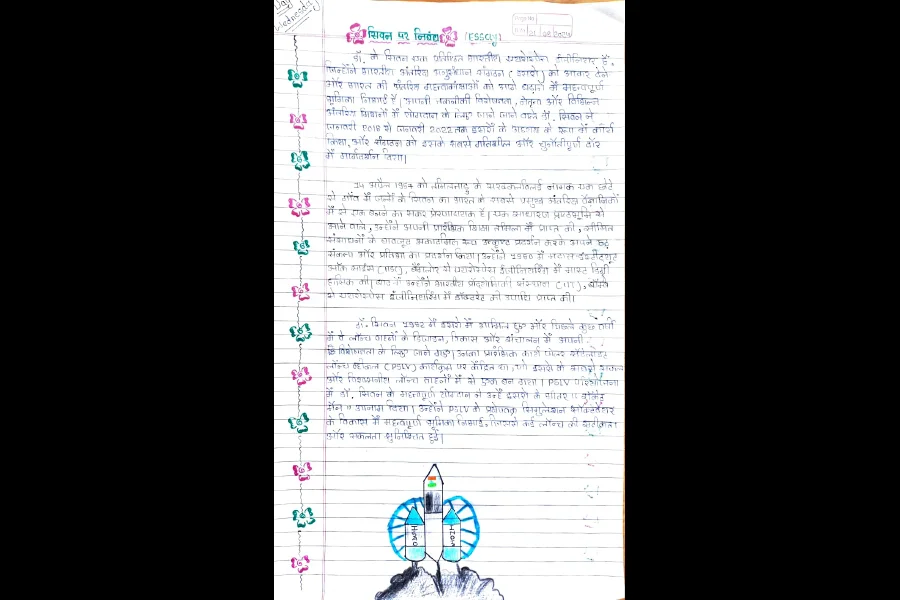 Day
Wednesday
शिवन पर निबंध (ESSAY)
डॉ. के शिवन एक प्रतिष्ठित भारतीय एयरोस्पेस इंजीनियर हैं,
जिन्होंने भारतीय अंतरिक्ष अनुसंधान संगठन (इसरो) को आकार देने
और भारत की अंतरिक्ष महत्वाकांक्षाओं को आगे बढ़ाने में महत्वपूर्ण
भूमिका निभाई है। अपनी तकनीकी विशेषज्ञता, नेतृत्व और विभिन्न
अंतरिक्ष मिशनों में योगदान के लिए जाने जाने वाले डॉ. शिवन ने
जनवरी 2018 से जनवरी 2022 तक इसरो के अध्यक्ष के रूप में कार्य
किया, और संगठन को इसके सबसे गतिशील और चुनौतीपूर्ण दौर
में मार्गदर्शन दिया।
14 अप्रैल 1957 को तमिलनाडु के नामक एक छोटे
से गाँव में जन्मे के शिवन का भारत के सबसे प्रमुख अंतरिक्ष वैज्ञानिकों
में से एक बनने का सफर प्रेरणादायक है। एक साधारण पृष्ठभूमि से
आने वाले, उन्होंने अपनी प्रारंभिक शिक्षा तमिल में प्राप्त की, सीमित
संसाधनों के बावजूद अकादमिक रूप उत्कृष्ट प्रदर्शन करके अपने दृढ़
संकल्प और प्रतिभा का प्रदर्शन किया। उन्होंने 1980 में
ऑफ साइंस (IISC), बैंगलोर से एयरोस्पेस इंजीनियरिंग में मास्टर डिग्री
हासिल की। बाद में उन्होंने भारतीय प्रौद्योगिकी संस्थान (IIT), बॉम्बे
से एयरोस्पेस इंजीनियरिंग में डॉक्टरेट की उपाधि प्राप्त की।
डॉ. शिवन 1982 में इसरो में शामिल हुए और पिछले कुछ वर्षों
में वे लॉन्च वाहनों के डिज़ाइन, विकास और संचालन में अपनी
विशेषज्ञता के लिए जाने गए। उनका प्रारंभिक कार्य पोलर सैटेलाइट
लॉन्च व्हीकल (PSLV) कार्यक्रम पर केंद्रित था, जो इसरो के सबसे सफल
और विश्वसनीय लॉन्च वाहनों में से एक बन गया। PSLV परियोजना
में डॉ. शिवन के महत्वपूर्ण योगदान ने उन्हें इसरो के भीतर "रॉकेट
मैन" उपनाम दिया। उन्होंने PSLV के प्रक्षेपवक्र सिमुलेशन सॉफ्टवेयर
के विकास में महत्वपूर्ण भूमिका निभाई, जिससे कई लॉन्च की सटीकता
और सफलता सुनिश्चित हुई।